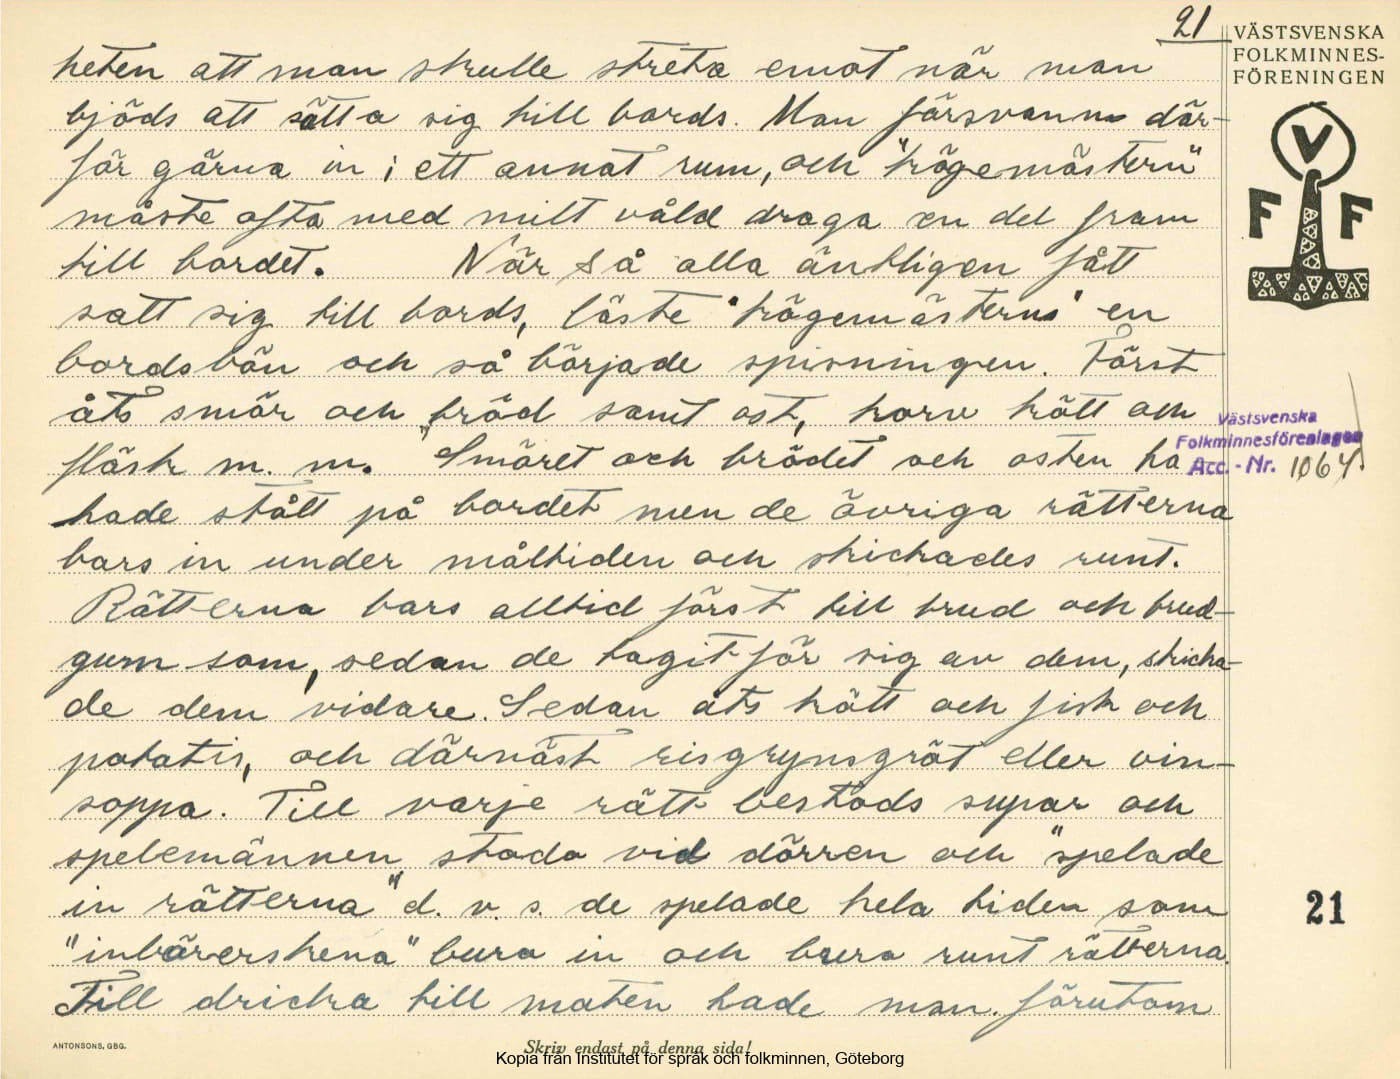 21
VÄSTSVENSKA
FOLKMINNES-
FÖRENINGEN
V
F F
heten att man skulle streta emot när man
bjöds att sätta sig till bords. Man försvann där-
för gärna in i ett annat rum, och "kögemästern"
måste ofta med milt våld draga en del fram
till bordet. När så alla äntligen fått
satt sig till bords, läste "kögemästern" en
bordsbön och så började spisningen. Först
åts smör och bröd samt ost, korv kött och
fläsk m. m. "Smöret och brödet och osten ha
hade stått på bordet men de övriga rätterna
bars in under måltiden och skickades runt.
Rätterna bars alltid först till brud och brud-
gum som, sedan de tagit för sig av dem, skicka-
de dem vidare. Sedan åts kött och fisk och
potatis, och därnäst risgrynsgröt eller vin-
soppa. Till varje rätt bestods supar och
spelemännen stodo vid dörren och "spelade
in rätterna" d. v. s. de spelade hela tiden som
"inbärerskena" buro in och buro runt rätterna.
Till dricka till maten hade man förutom
Västsvenska
Folkminnesföreningen
Acc.-Nr. 1064
21
ANTONSONS, GBG.
Skriv endast på denna sida!
Kopia från Institutet för språk och folkminnen, Göteborg